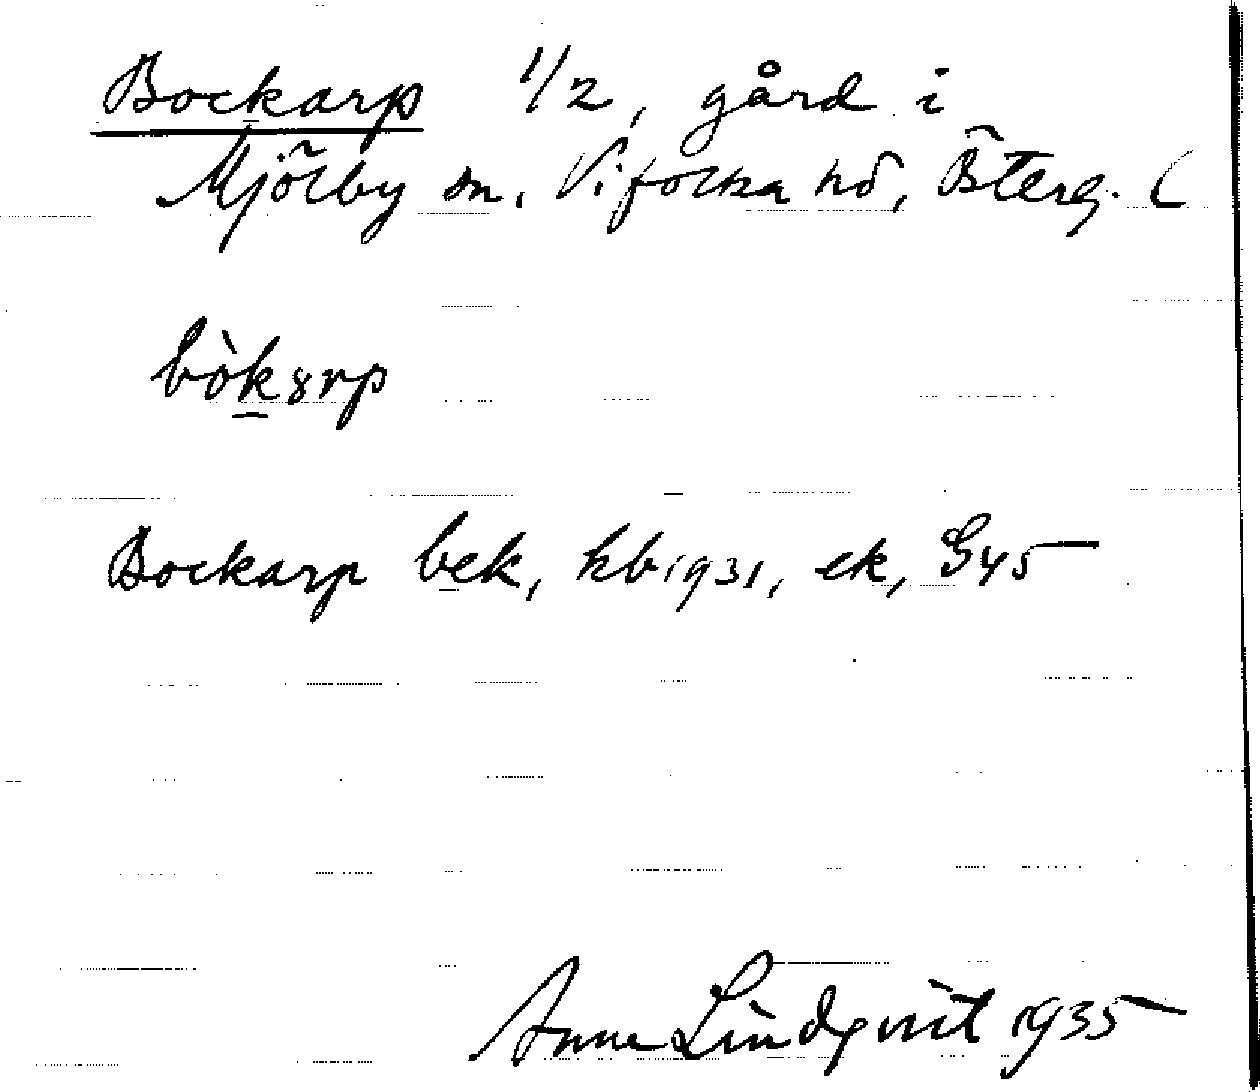 Bockarp 1/2, gård i
Mjölby sn. Vifolka hd, Österg. (
bòkɜrp
Bockarp bek, hb 1931, ek, G45
Anna Lindqvist 1935